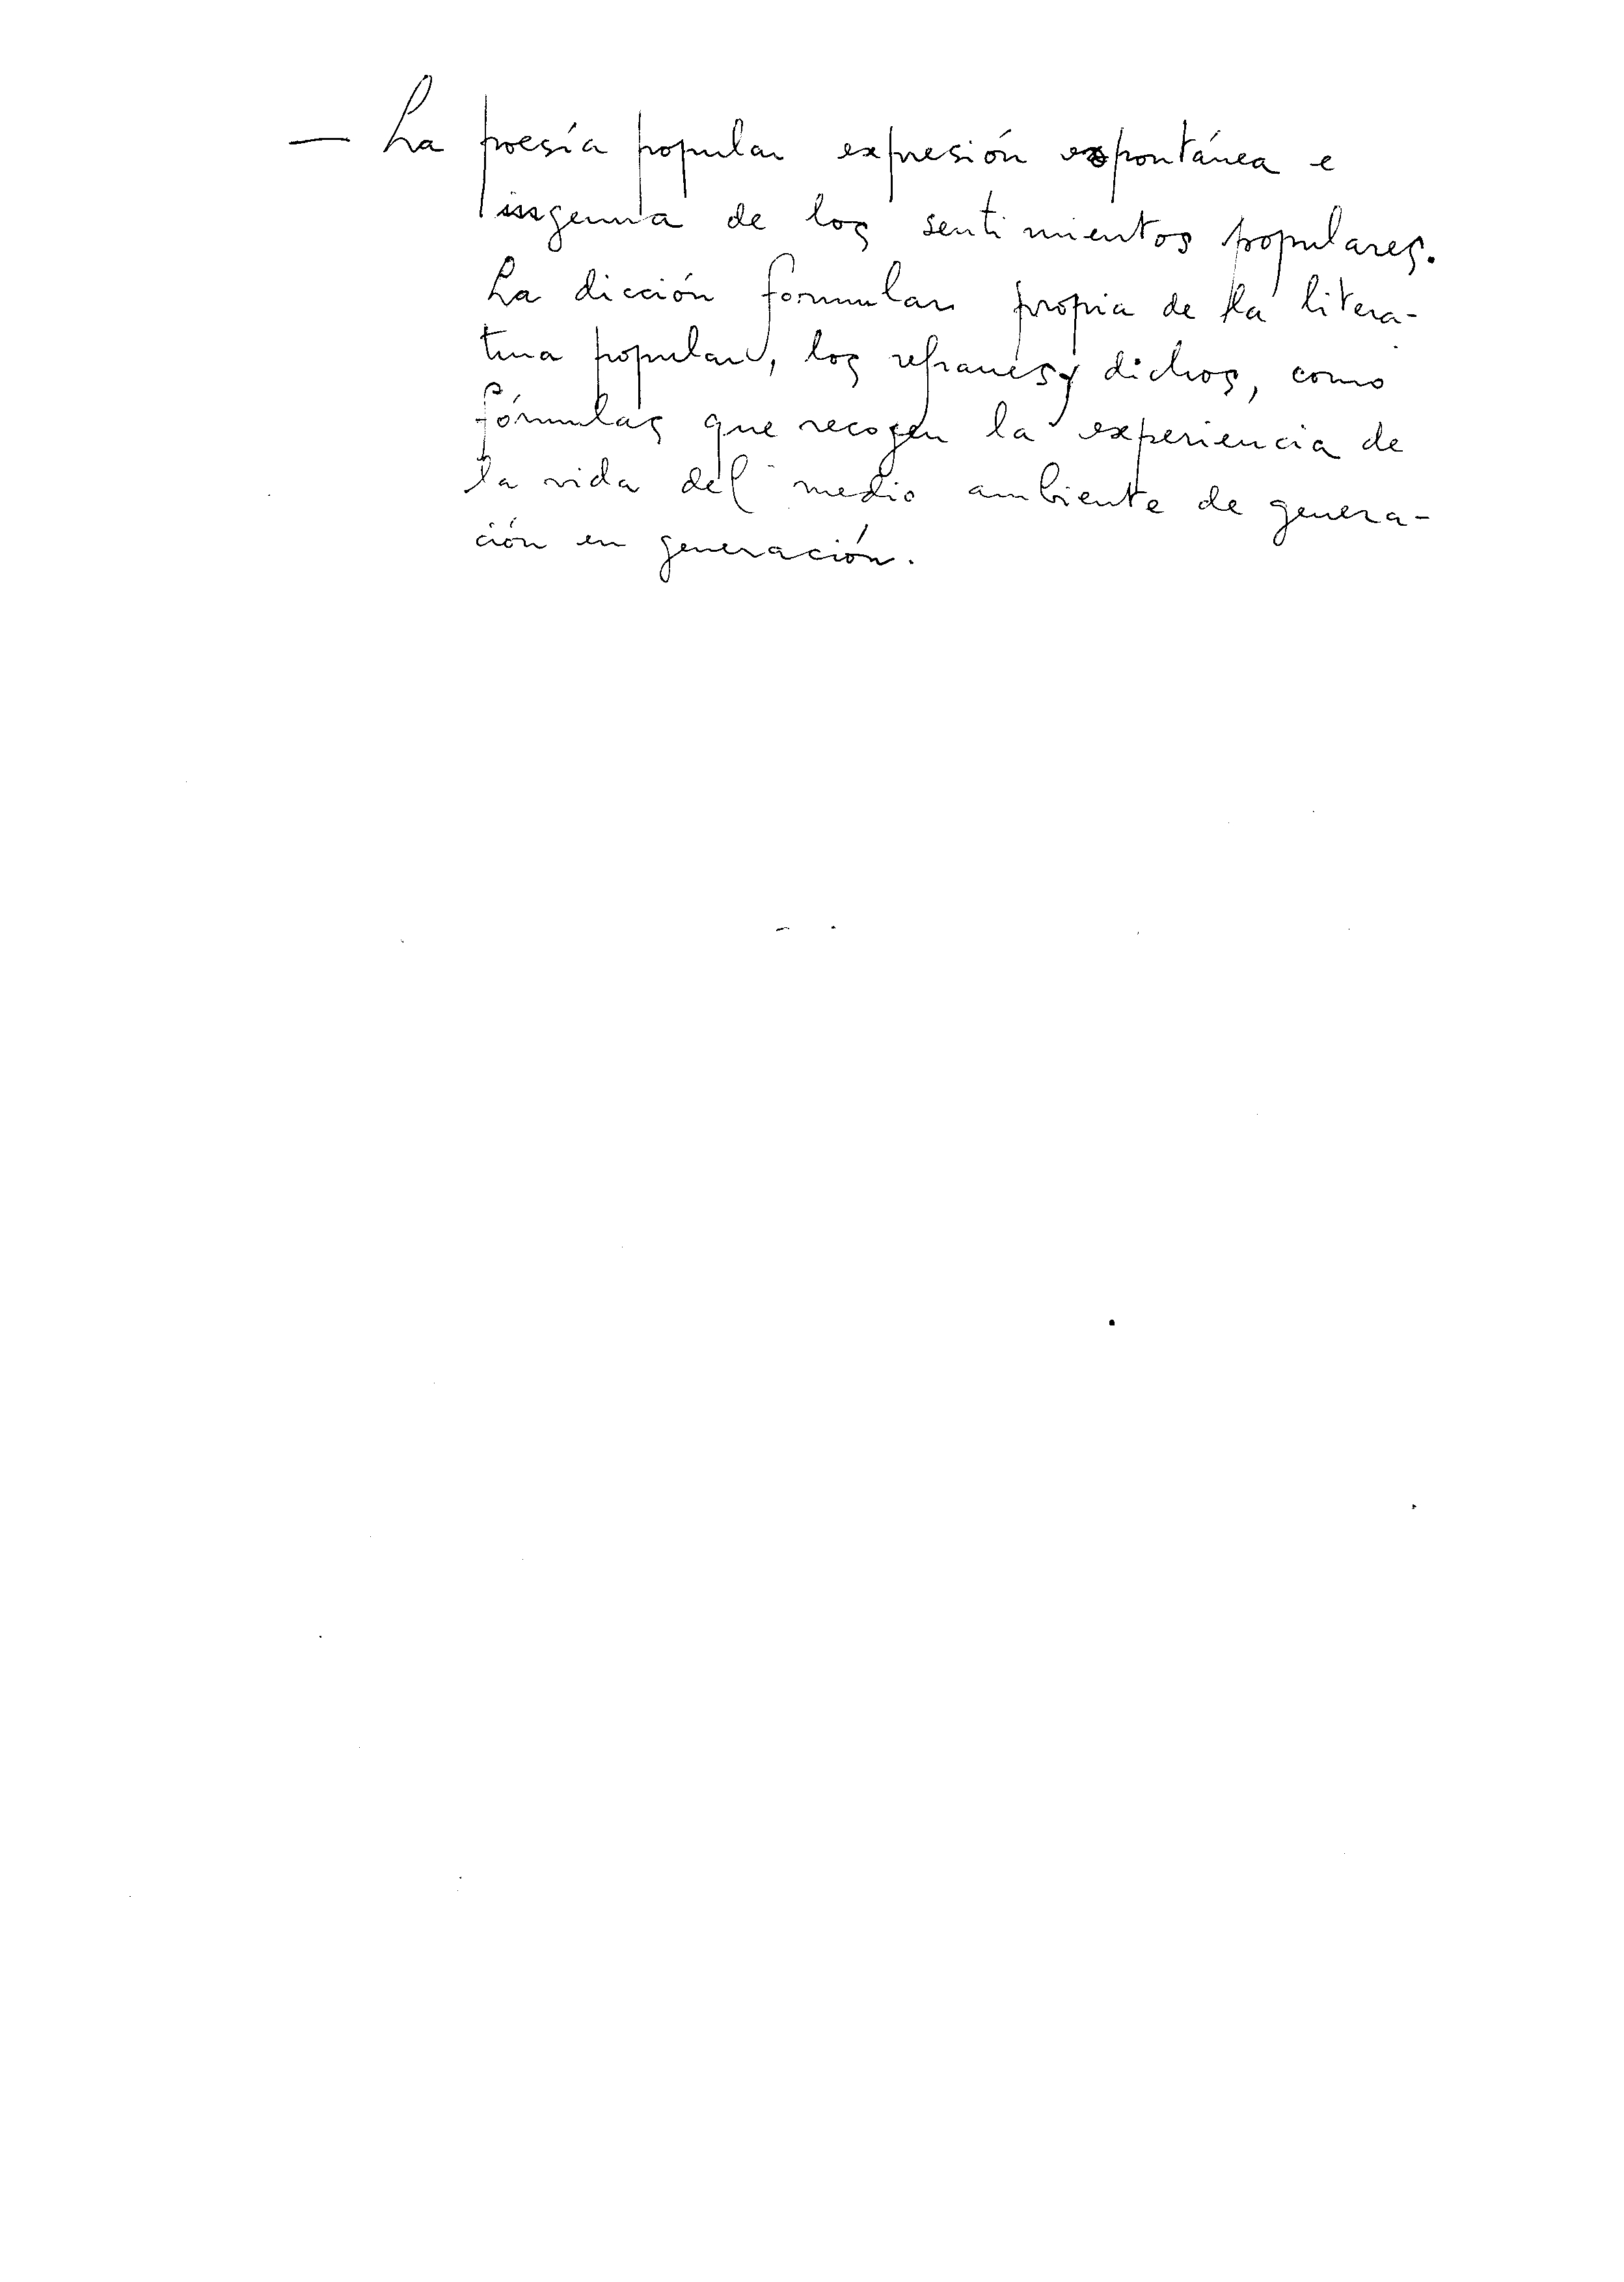 — La poesía popular expresión espontánea e
ingenua de los sentimientos populares.
La dicción formular propia de la litera-
tura popular, los refranes y dichos, como
fórmulas que recogen la experiencia de
la vida del medio ambiente de genera-
ción en generación.